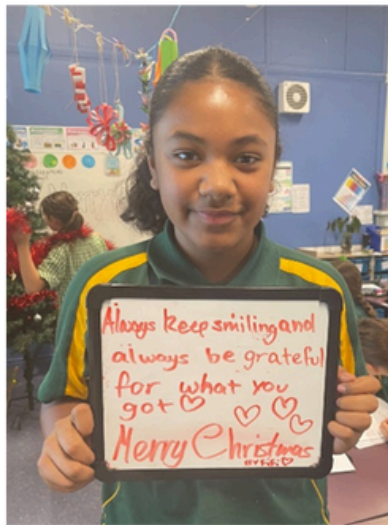 Always keep smiling and
always be grateful
for what you
got ♡
Merry Christmas
BY FiFi ♡